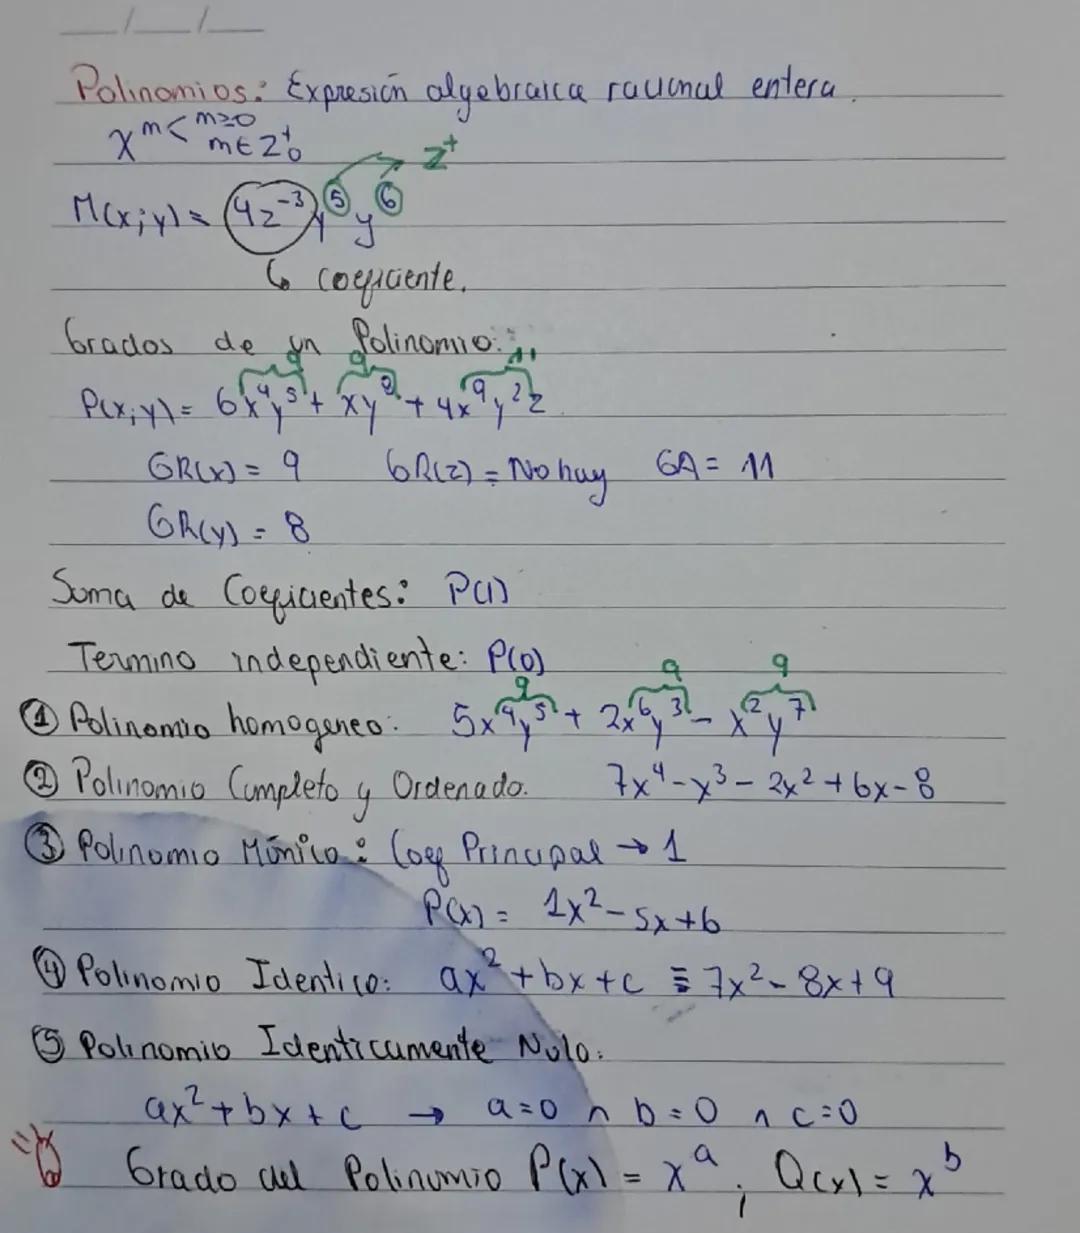 __/__/__
Polinomios: Expresión algebraica racional entera.
x^m < m≥0
m∈Z₀⁺
Z⁺
M(x;y) = 4z⁻³x⁵y⁶
↳ coeficiente.
Grados de un Polinomio:
9 9 11
P(x;y) = 6x⁴y⁵ + xy⁸ + 4x⁹y²z
GR(x) = 9 GR(z) = No hay GA = 11
GR(y) = 8
Suma de Coeficientes: P(1)
Termino independiente: P(0)
9 9 9
① Polinomio homogeneo: 5x⁴y⁵ + 2x⁶y³ - x²y⁷
② Polinomio Completo y Ordenado. 7x⁴-x³-2x²+6x-8
③ Polinomio Mónico: Coef Principal → 1
P(x) = 1x²-5x+6
④ Polinomio Identico: ax²+bx+c ≡ 7x²-8x+9
⑤ Polinomio Identicamente Nulo:
ax²+bx+c → a=0 ∧ b=0 ∧ c=0
Grado del Polinomio P(x) = xᵃ ; Q(x) = xᵇ